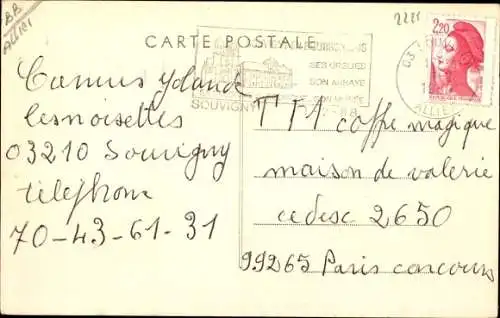 BB
ALLIER
2221
CARTE POSTALE
SES ORGUES
SON ABBAYE
SOUVIGNY
ALLIER
2,20
Camus Yolande
les noisettes
03210 Souvigny
téléphone
70-43-61-31
TF1 coffre magique
maison de valerie
cedesc 2650
99265 Paris concours